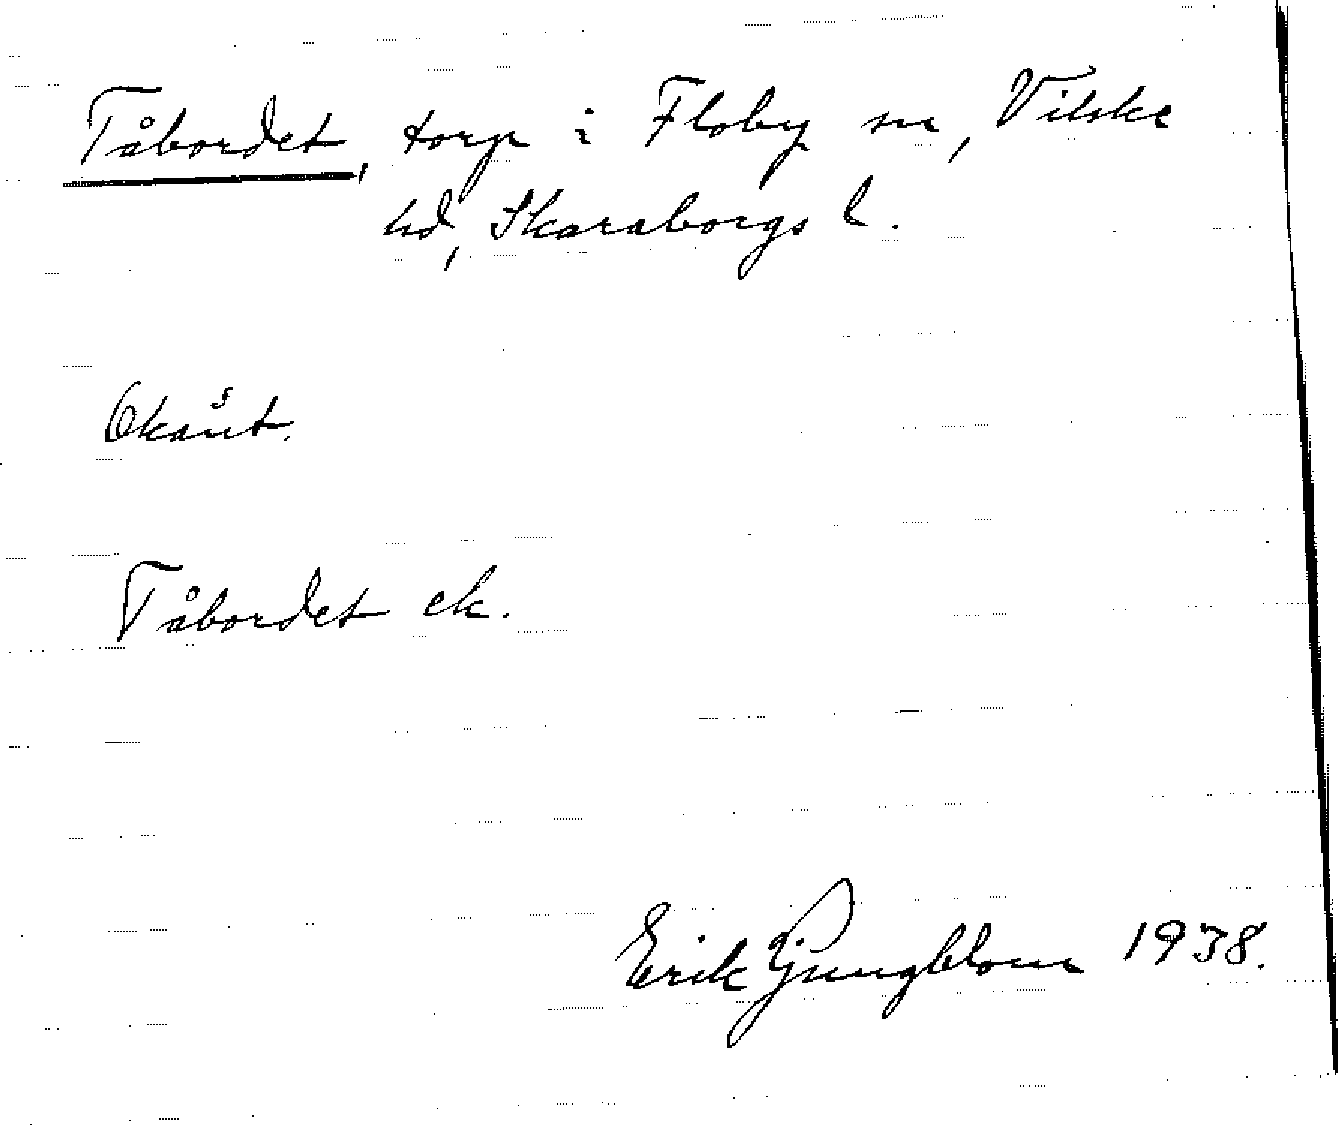 Tåbordet, torp i Floby sn, Vilske
hd, Skaraborgs l.
Okänt.
Tåbordet ek.
Erik Ljungblom 1938.